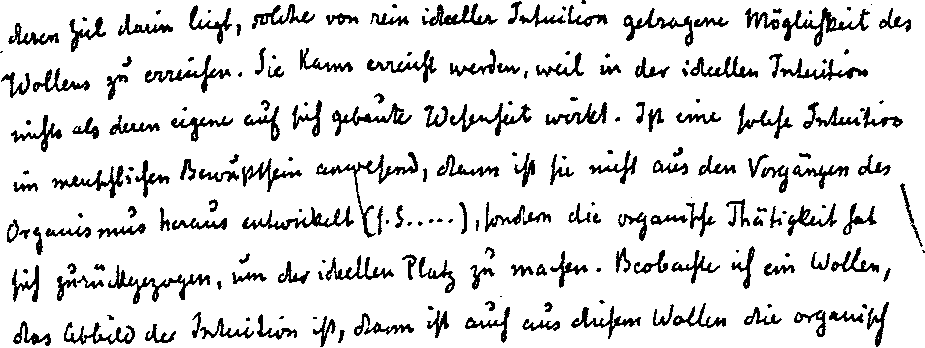 deren Ziel darin liegt, solche von rein ideeller Intuition getragene Möglichkeit des
Wollens zu erreichen. Sie kann erreicht werden, weil in der ideellen Intuition
nichts als deren eigene auf sich gebaute Wesenheit wirkt. Ist eine solche Intuition
im menschlichen Bewußtsein anwesend, dann ist sie nicht aus den Vorgängen des
Organismus heraus entwickelt (s. S.....), sondern die organische Thätigkeit hat
sich zurückgezogen, um der ideellen Platz zu machen. Beobachte ich ein Wollen,
das Abbild der Intuition ist, dann ist auch aus diesem Wollen die organisch